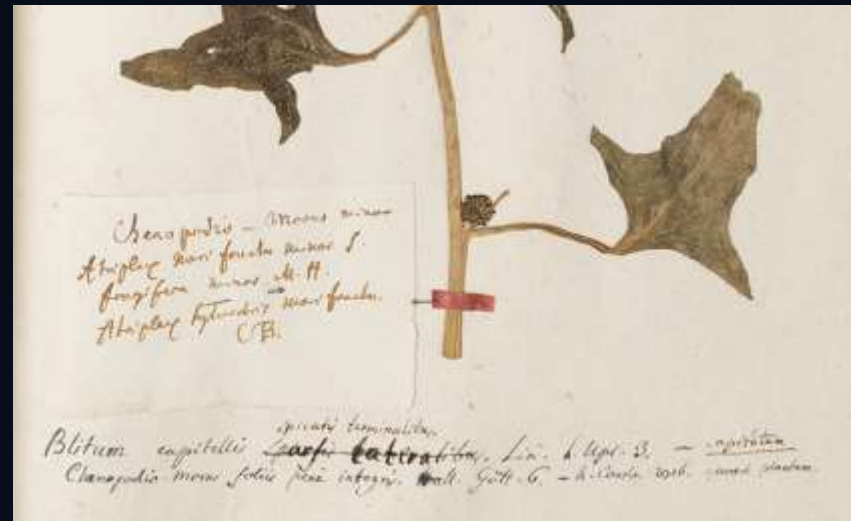 Chenopodio - Morus minor
Atriplex mori fructu minor S.
fragifera minor M. H.
Atriplex sylvestris mori fructu.
C B.
spicatis terminalibus
Blitum capitellis sparsis lateralibus. Lin. h Ups. 3. — capitatum
Chenopodio morus foliis pene integris. Hall. Gött. 6. —